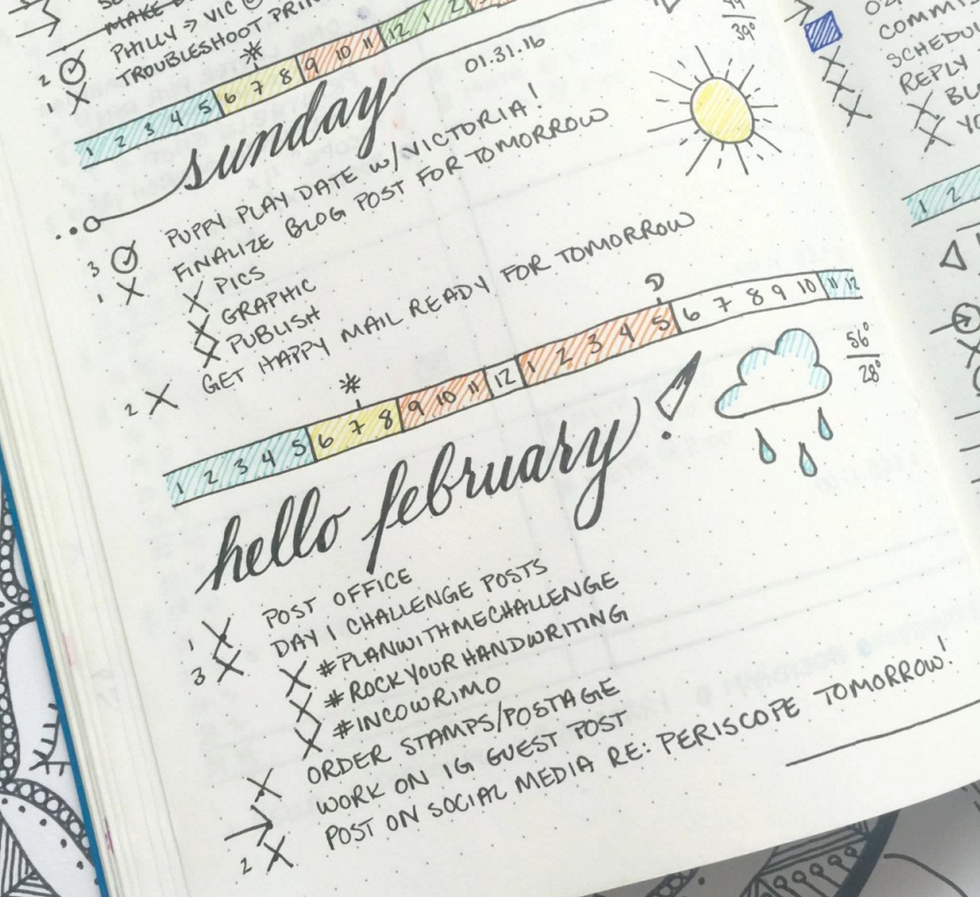 MAKE
2 PHILLY → VIC
1 X TROUBLESHOOT
1 2 3 4 5 6 7 8 9 10 11 12 1 2
39°
sunday
01.31.16
3 PUPPY PLAY DATE W/VICTORIA!
1 X FINALIZE BLOG POST FOR TOMORROW
X PICS
X GRAPHIC
X PUBLISH
2 X GET HAPPY MAIL READY FOR TOMORROW
1 2 3 4 5 6 7 8 9 10 11 12 1 2 3 4 5 6 7 8 9 10 11 12
56°
28°
hello february!
1 X POST OFFICE
3 X DAY 1 CHALLENGE POSTS
X #PLANWITHMECHALLENGE
X #ROCKYOURHANDWRITING
X #INCOWRIMO
X ORDER STAMPS/POSTAGE
→ WORK ON IG GUEST POST
2 X POST ON SOCIAL MEDIA RE: PERISCOPE TOMORROW!
REPLY
1 2